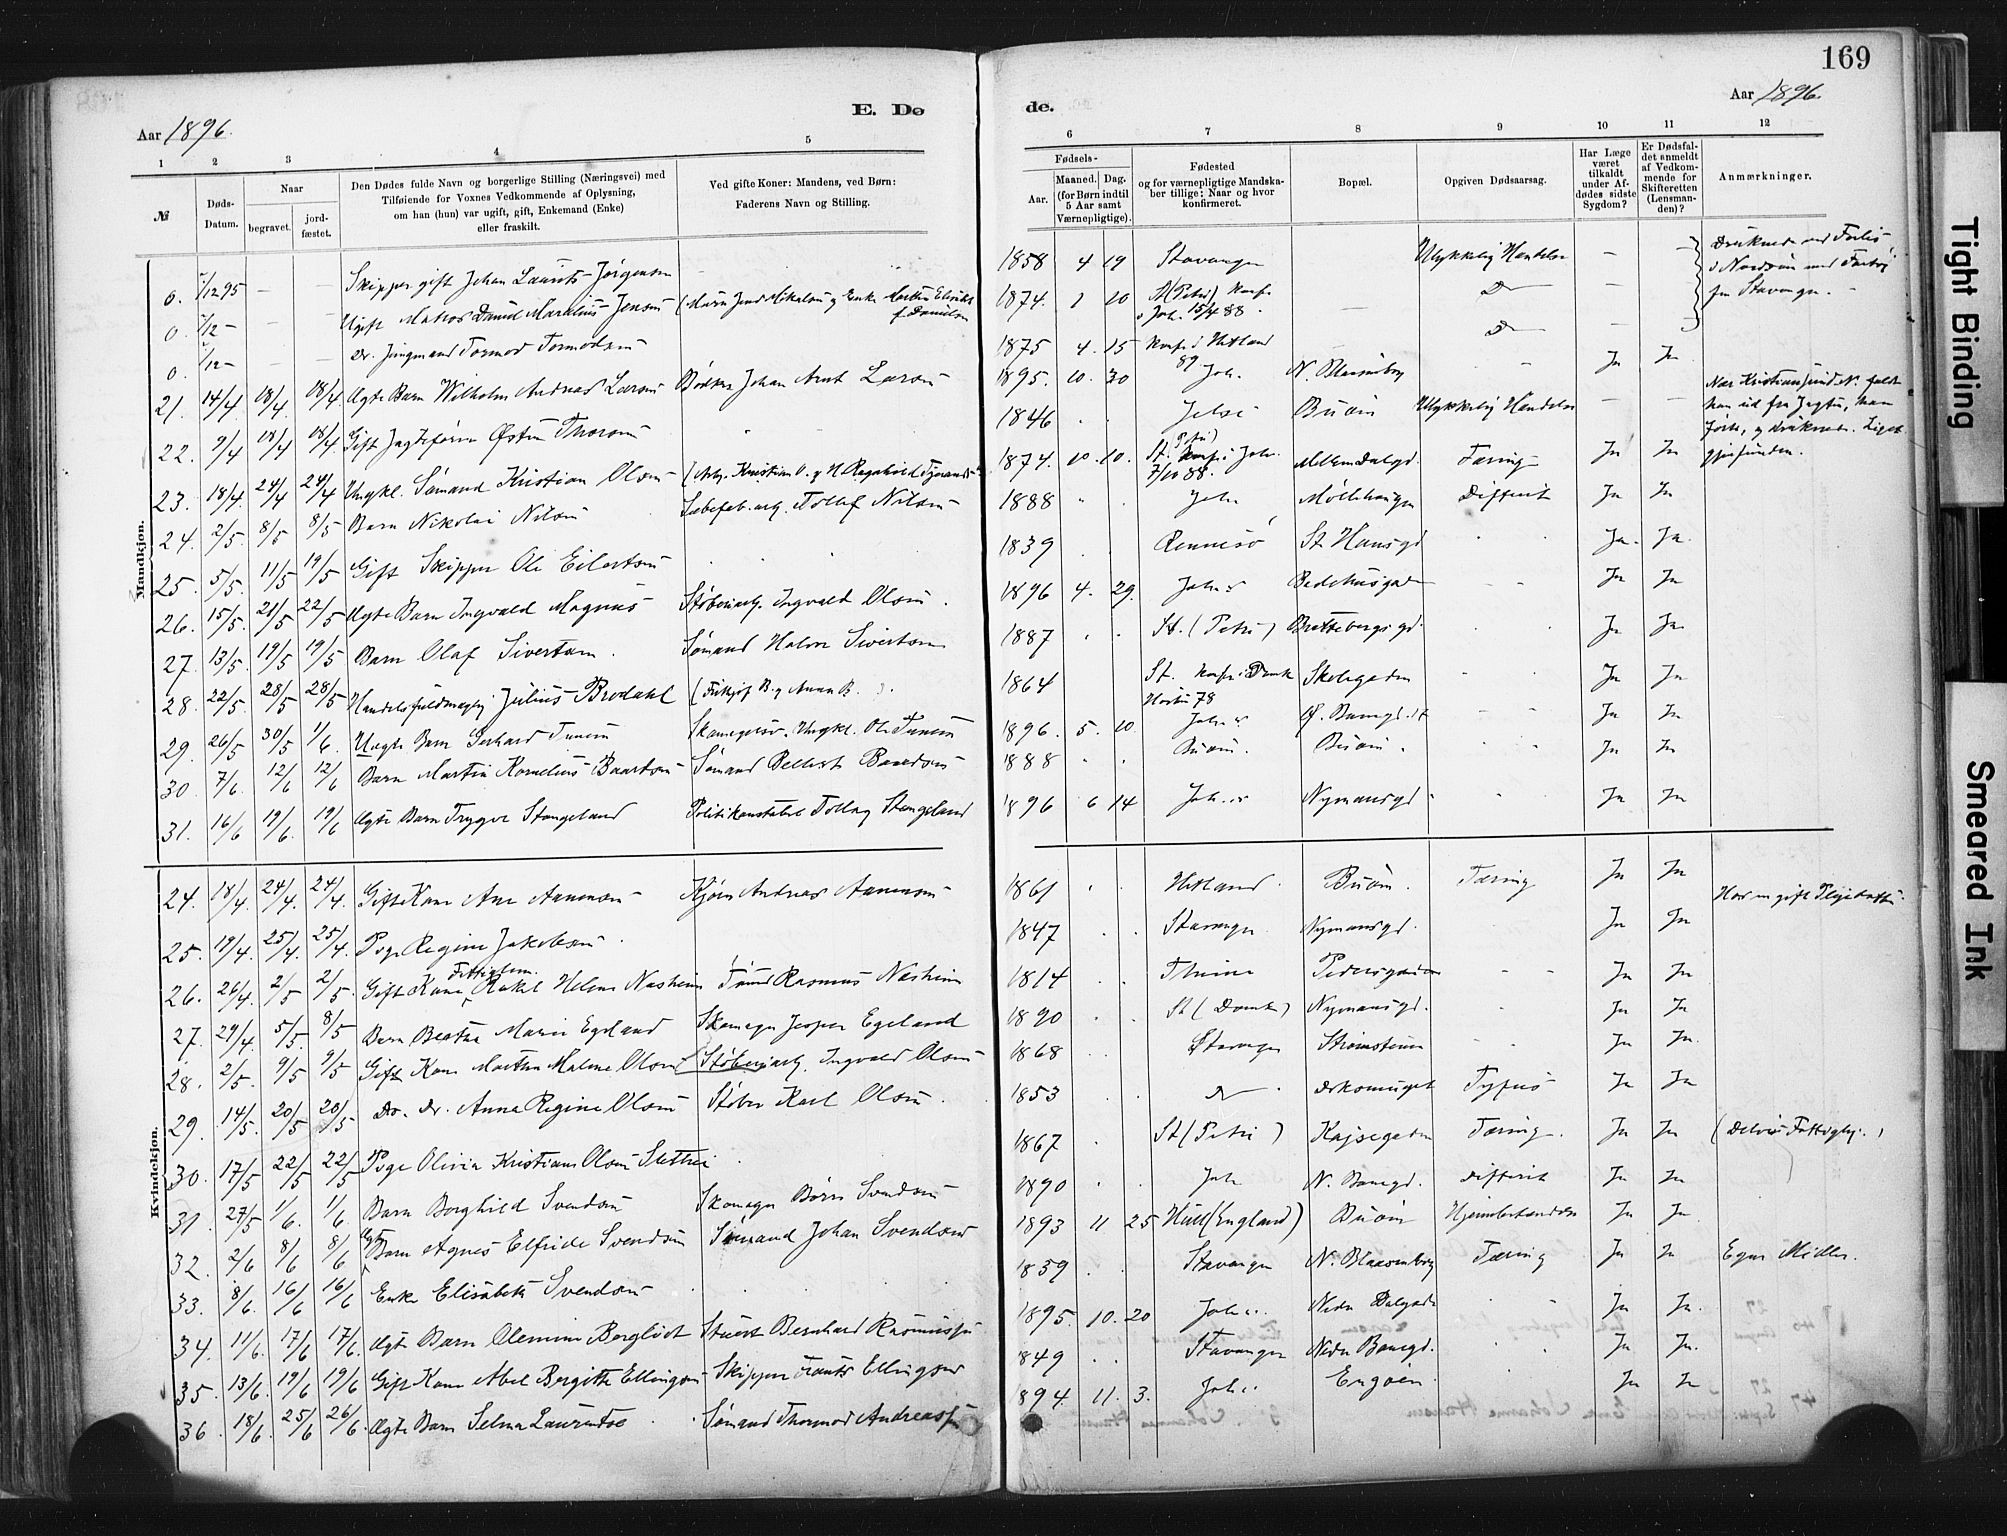 169
E. Dø
de.
Aar 1896.
Aar 1896.
1 2 3 4 5
6 7 8 9 10 11 12
№
Døds-Datum.
Naar
begravet.
jord-fæstet.
Den Dødes fulde Navn og borgerlige Stilling (Næringsvei) med
Tilføiende for Voxnes Vedkommende af Oplysning,
om han (hun) var ugift, gift, Enkemand (Enke)
eller fraskilt.
Ved gifte Koner: Mandens, ved Børn:
Faderens Navn og Stilling.
Fødsels-
Aar.
Maaned. Dag.
(for Børn indtil
5 Aar samt
Værnepligtige).
Fødested
og for værnepligtige Mandska-
ber tillige: Naar og hvor
konfirmeret.
Bopæl.
Opgiven Dødsaarsag.
Har Læge
været
tilkaldt
under Af-
dødes sidste
Sygdom?
Er Dødsfal-
det anmeldt
af Vedkom-
mende for
Skifteretten
(Lensman-
den)?
Anmærkninger.
Mandkjøn.
0. /12 95 – – Skipper gift Johan Laurits Jørgensen – 1858 4 19 Stavanger Ulykkelig Hændelse – –
0. /12 – – – Ugift Matros Daniel Marelius Jensen 1874. 1 20 St (Petri) konf. i Joh. 15/4 88. – Do –
0. /12 – – – Do. Jungmand Tormod Tormodsen 1875 4. 15 konf. i Hetland 89 – Do –
21. 14/4 18/4 18/4. Ægte Barn Wilhelm Andreas Larsen Bødker Johan Arnt Larsen 1895. 10. 30 Joh. N. Blaasenborg Ja Ja
22. 9/4 18/4 18/4. Gift Jagtefører Østen Thorsen 1846 Jelse Buøen Ulykkelig Hændelse – –
23. 18/4. 24/4 24/4 Ungkl. Sømand Kristian Olsen 1874. 10. 10. St. (Petri) konf. i Joh. 7/10 88. Tæring Ja Ja
24. 2/5. 8/5 8/5 Barn Nikolai Nilsen Sæbefab. arb. Tollef Nilsen 1888 Joh. Difterit Ja Ja
25. 5/5. 11/5 19/5 Gift Skipper Ole Eilertsen 1839 Rennesø St. Hansgd Ja. Ja.
26. 15/5. 21/5 22/5 Ægte Barn Ingvald Magnus Støberiarb. Ingvald Olsen. 1896 4. 29. Joh. Bedehusgaden Ja Ja
27. 13/5. 19/5 19/5 Barn Olaf Sivertsen. Sømand Halvor Sivertsen 1887 St. (Petri) Brattebergs gd. Ja Ja
28. 22/5. 28/5 28/5 Handelsfuldmægtig Julius Brodahl 1864 St. konf. i Domk 78 Skolegaden Ja Ja
29. 26/5 30/5 1/6. Uægte Barn Gerhard Tunem Ungkl. Ole Tunem 1896. 5. 10 Joh. Ø. Banegd. Ja Ja
30. 7/6. 12/6 12/6 Barn Martin Kornelius Baardsen Sømand Baardsen 1888 Buøen. Buøen. Ja Ja
31. 16/6 19/6. 19/6 Ægte Barn Trygve Stangeland Politikonstabel Tollag Stangeland 1896 6 14 Joh. Nymansgd Ja Ja
Druknede ved Forlis
i Nordsøen med Fartøi
fra Stavanger. –
Nær Kristiansund N. faldt
han ud fra Jagten, han
førte, og druknede. Liget
gjenfunden.
Kvindekjøn.
24. 18/4. 24/4. 24/4. Gift Kone Ane Aanensen Kjøm. Andreas Aanensen 1861 Hetland Buøen. Tæring Ja Ja
25. 19/4. 25/4. 25/4. Pige Regine Jakobsen. 1847 Stavanger Nymansgd. Ja Ja
26. 26/4. 2/5 2/5. Gift Kone Rakel Helene Næsheim Rasmus Næsheim 1814 Pedersgaden Ja Ja
27. 29/4. 5/5. 8/5 Barn Beate Marie Egeland Skomager Jesper Egeland 1890 St (Domk) Nymansgd. Ja Ja
28. 2/5. 9/5 9/5 Gift Kone Marthe Malene Olsen Støberiarb. Ingvald Olsen 1868 Stavanger Strømsteen Ja Ja.
29. 14/5. 20/5 20/5 Do. Do. Anna Regine Olsen Støber Karl Olsen. 1853 Do Tyfus Ja Ja
30. 17/5 22/5 22/5 Pige Olivia Kristiane Olsen Slettei 1867 St (Petri) Kajsegaden Tæring. Ja Ja (Delvis Fattigbj.)
31. 27/5 1/6. 1/6 Barn Borghild Svendsen Skomager Børre Svendsen 1890 Joh N. Banegd. Difterit Ja Ja
32. 2/6 8/6 8/6 Ægte Barn Agnes Elfride Svendsen Sømand Johan Svendsen 1893 11 25 Hull (England) Buøen Hjernebetændelse Ja Ja
33. 8/6. 16/6 16/6 Enke Elisabeth Svendsen 1839 Stavanger N. Blaasenborg Tæring Ja Ja Egne Midler.
34. 11/6. 17/6 17/6. Ægte Barn Olemine Bergliot Stuert Bernhard Rasmussen 1895. 10. 20 Joh. Nedre Dalgade Ja Ja.
35. 13/6. 19/6 19/6 Gift Kone Abel Bergitte Ellingsen Skipper Frants Ellingsen 1849 Stavanger Nedre Banegd. Ja Ja.
36 18/6. 25/6 26/6. Ægte Barn Selma Laurentse Sømand Thormod Andreassen 1894. 11. 3. Joh. Engøen Ja Ja
Tight Binding
Smeared Ink